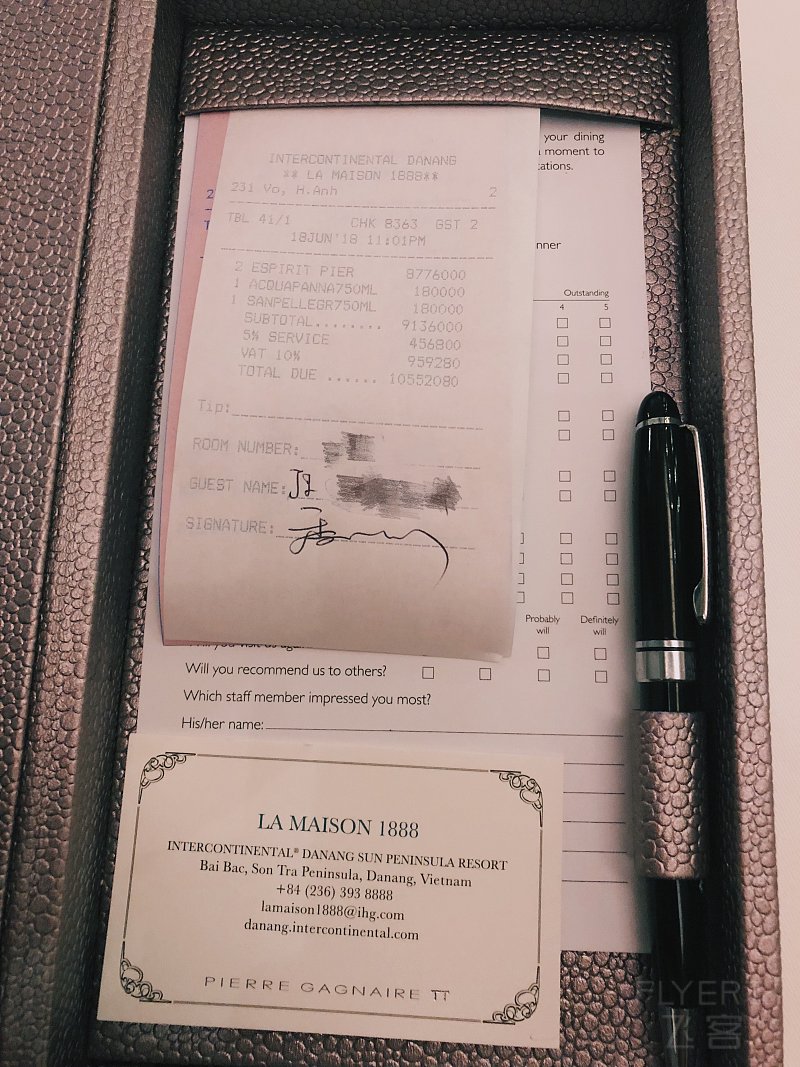 your dining
a moment to
tations.
INTERCONTINENTAL DANANG
** LA MAISON 1888**
231 Vo, H.Anh 2
TBL 41/1 CHK 8363 GST 2
18JUN'18 11:01PM
2 ESPIRIT PIER 8776000
1 ACQUAPANNA750ML 180000
1 SANPELLEGR750ML 180000
SUBTOTAL........ 9136000
5% SERVICE 456800
VAT 10% 959280
TOTAL DUE ...... 10552080
Tip:
ROOM NUMBER:
GUEST NAME:
SIGNATURE:
nner
Outstanding
4 5
Probably will
Definitely will
Will you recommend us to others?
Which staff member impressed you most?
His/her name:
LA MAISON 1888
INTERCONTINENTAL® DANANG SUN PENINSULA RESORT
Bai Bac, Son Tra Peninsula, Danang, Vietnam
+84 (236) 393 8888
lamaison1888@ihg.com
danang.intercontinental.com
PIERRE GAGNAIRE
FLYER
飞客